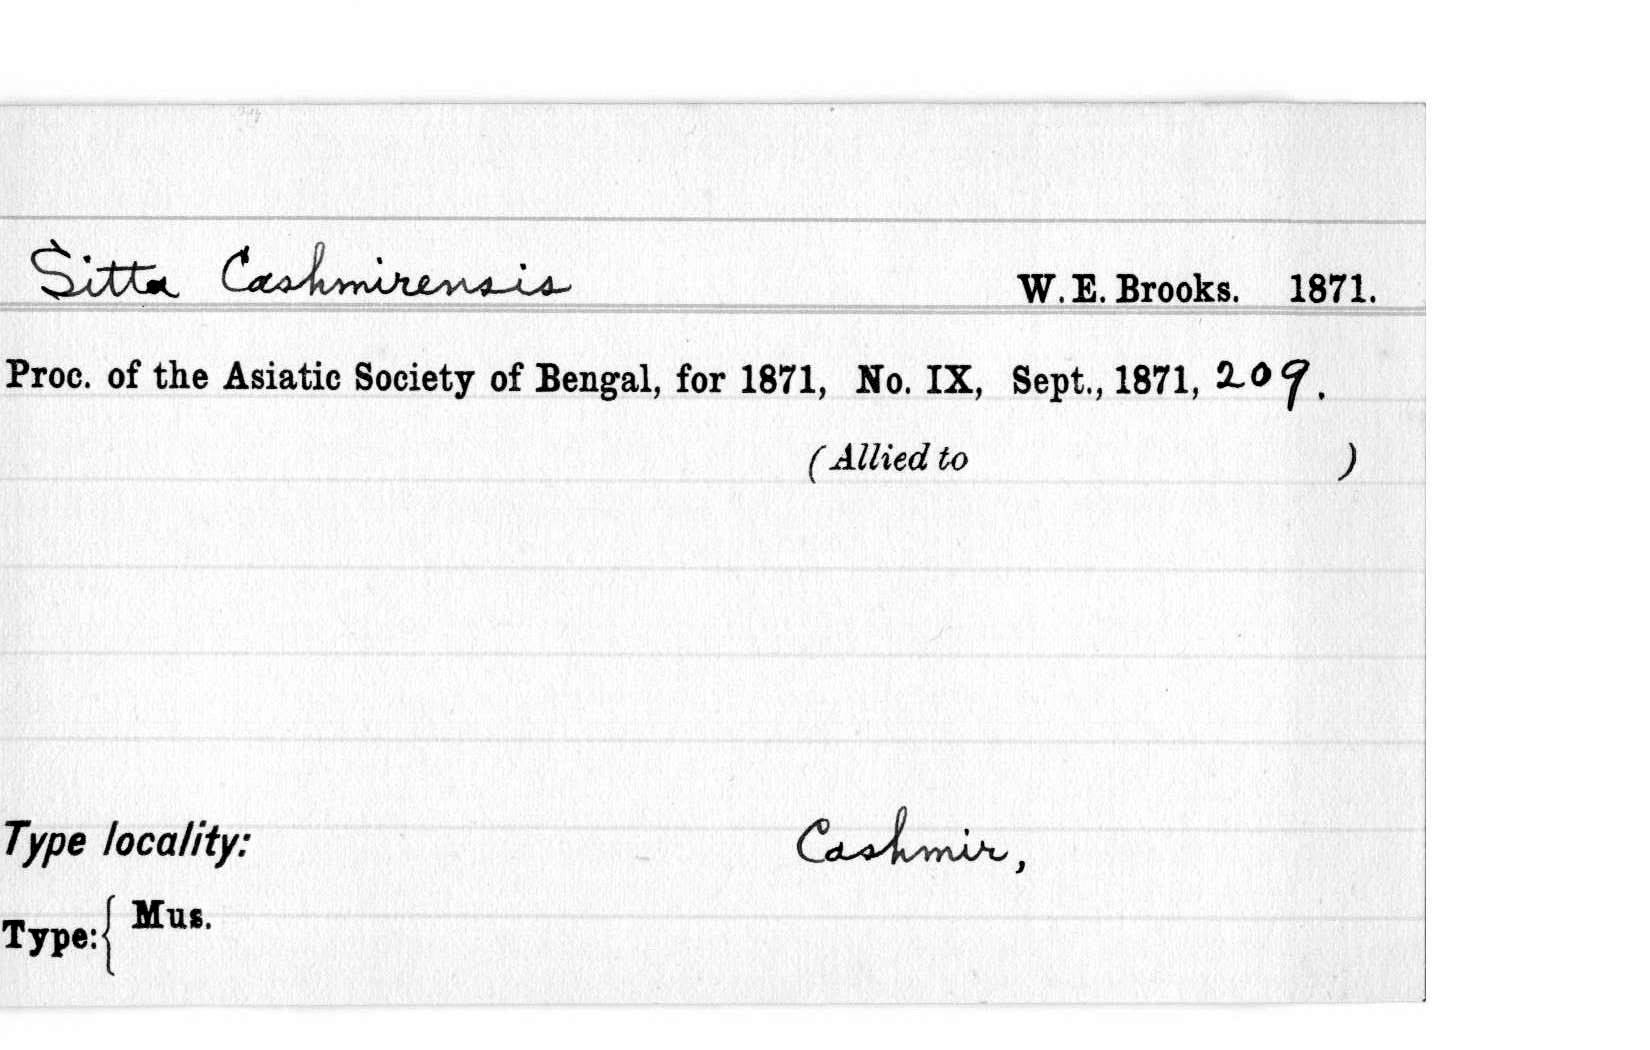 Sitta Cashmirensis W. E. Brooks. 1871.
Proc. of the Asiatic Society of Bengal, for 1871, No. IX, Sept., 1871, 209.
(Allied to )
Type locality: Cashmir,
Type: { Mus.